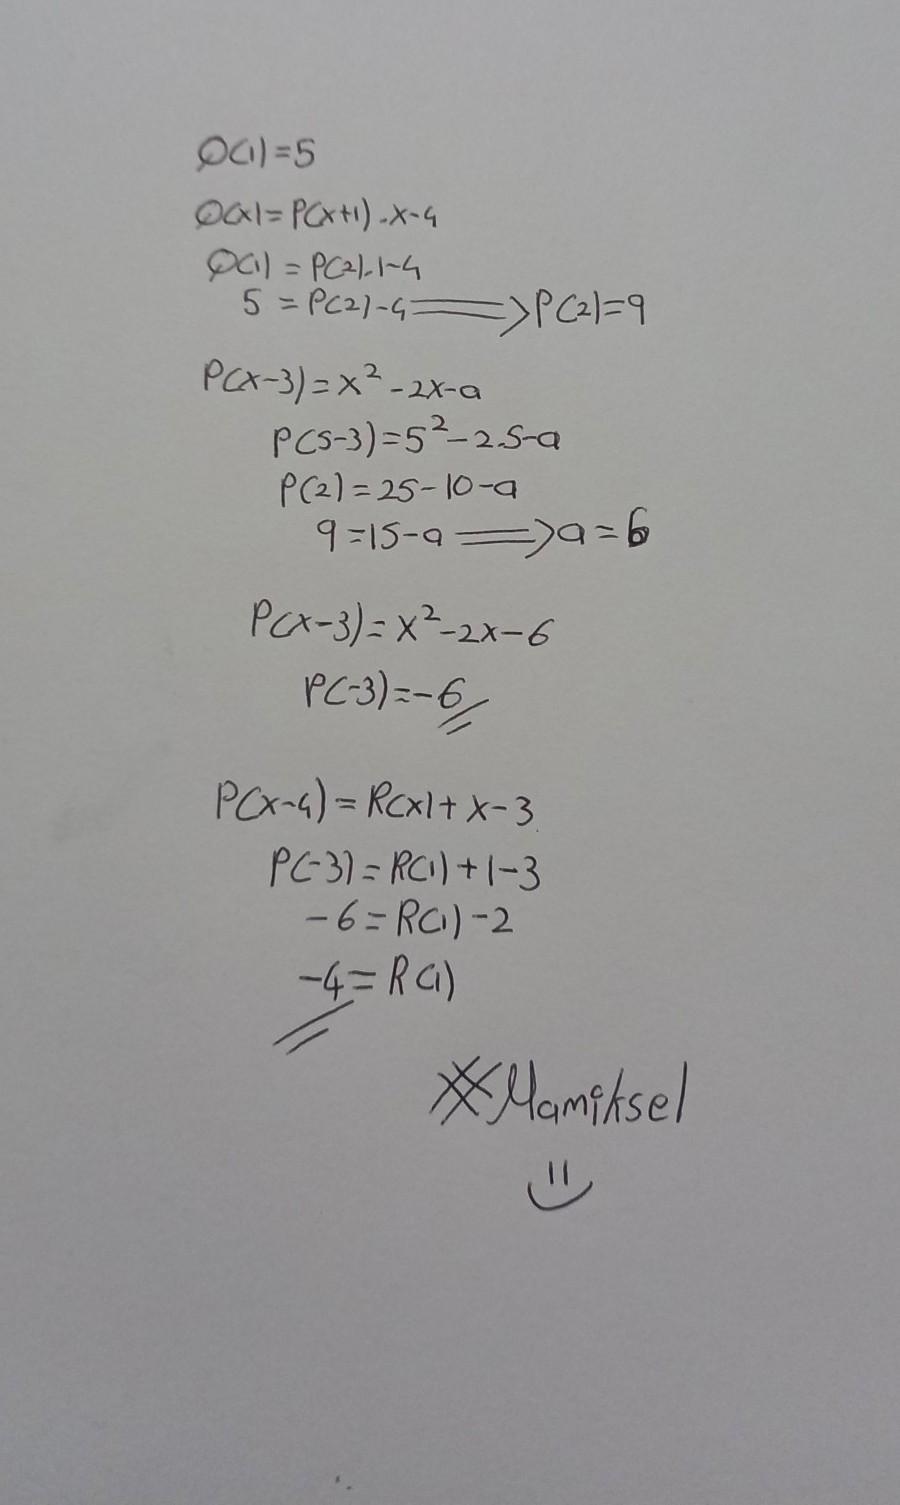 Q(1)=5
Q(x)=P(x+1).x-4
Q(1)=P(2).1-4
5=P(2)-4⟹P(2)=9
P(x-3)=x²-2x-a
P(5-3)=5²-2.5-a
P(2)=25-10-a
9=15-a⟹a=6
P(x-3)=x²-2x-6
P(-3)=-6
P(x-4)=R(x)+x-3
P(-3)=R(1)+1-3
-6=R(1)-2
-4=R(1)
#Mamiksel